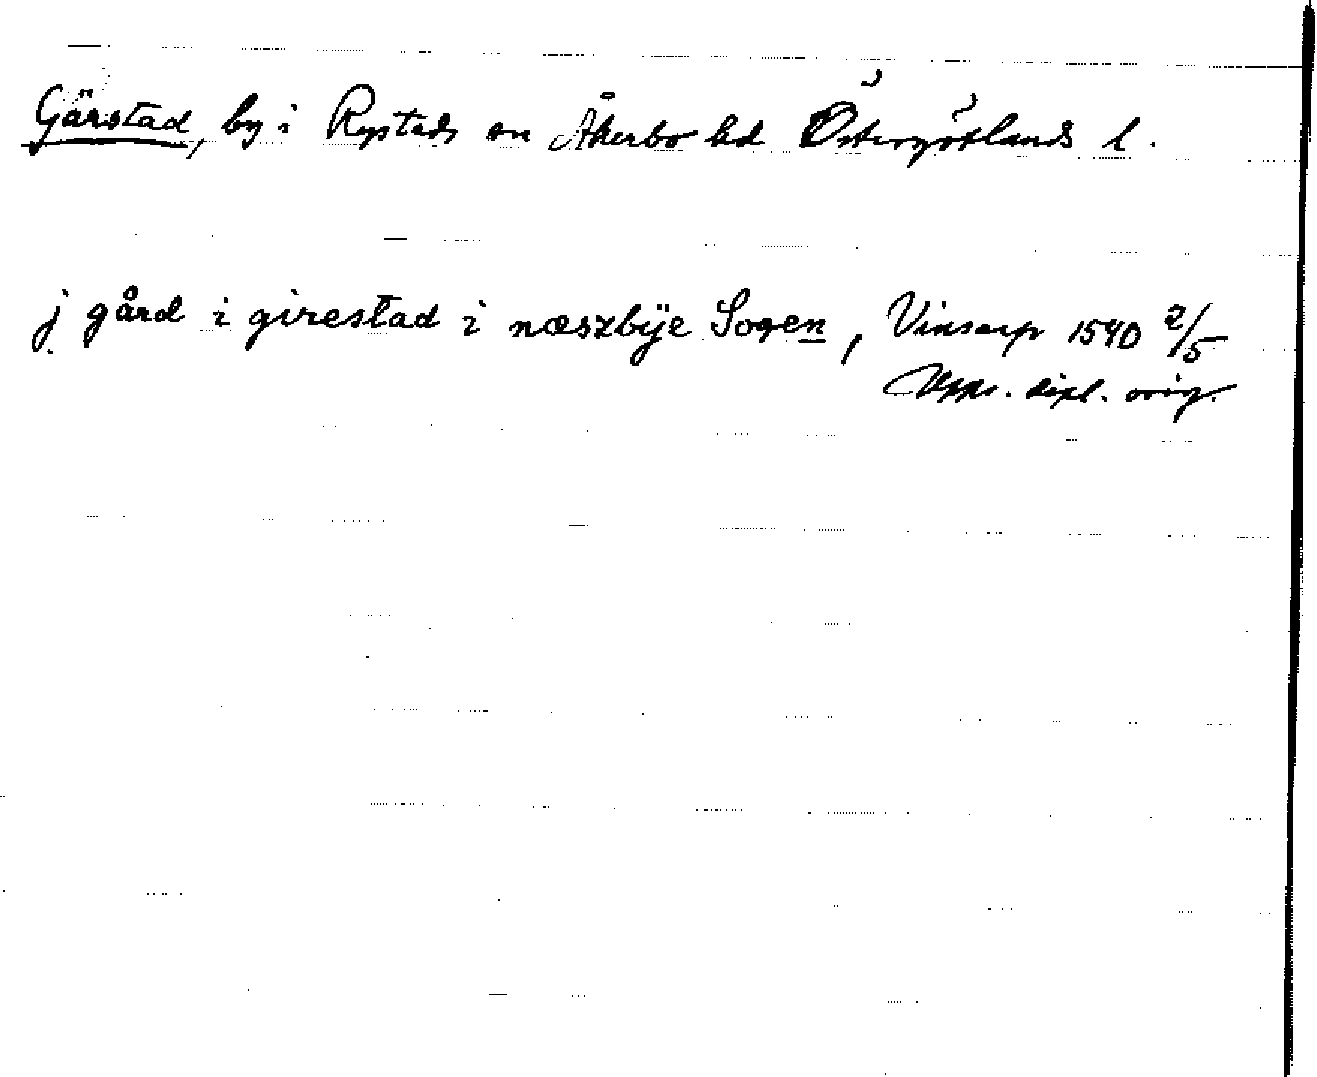 Gärstad, by i Rystads sn Åkerbo hd Östergötlands l.
j gård i girestad i næszbÿe Sogen, Vinsarp 1540 2/5
Upps. dipl. orig.